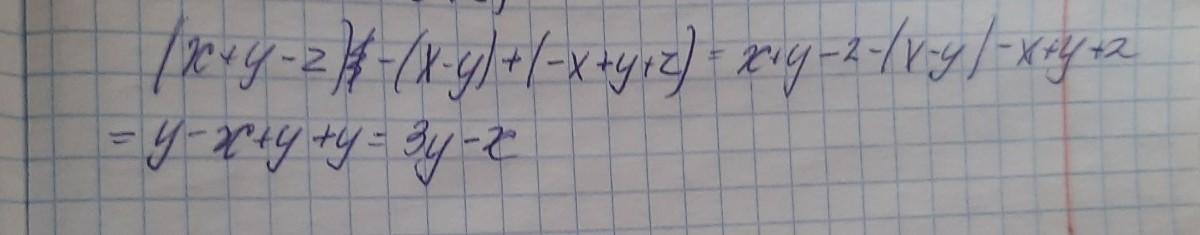 (x+y-z) - (x-y) + (-x+y+z) = x+y-z-(x-y)-x+y+z
= y-x+y+y = 3y-x